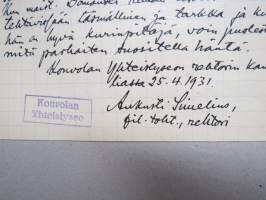 tehtävissään täsmällinen ja tarkka ja
hän on hyvä kurinpitäjä, voin puolest
mitä parhaiten suositella häntä.
Kouvolan Yhteislyseon rehtorin kan
liassa 25.4.1931.
Aukusti Simelius,
fil. toht., rehtori
Kouvolan
Yhteislyseo